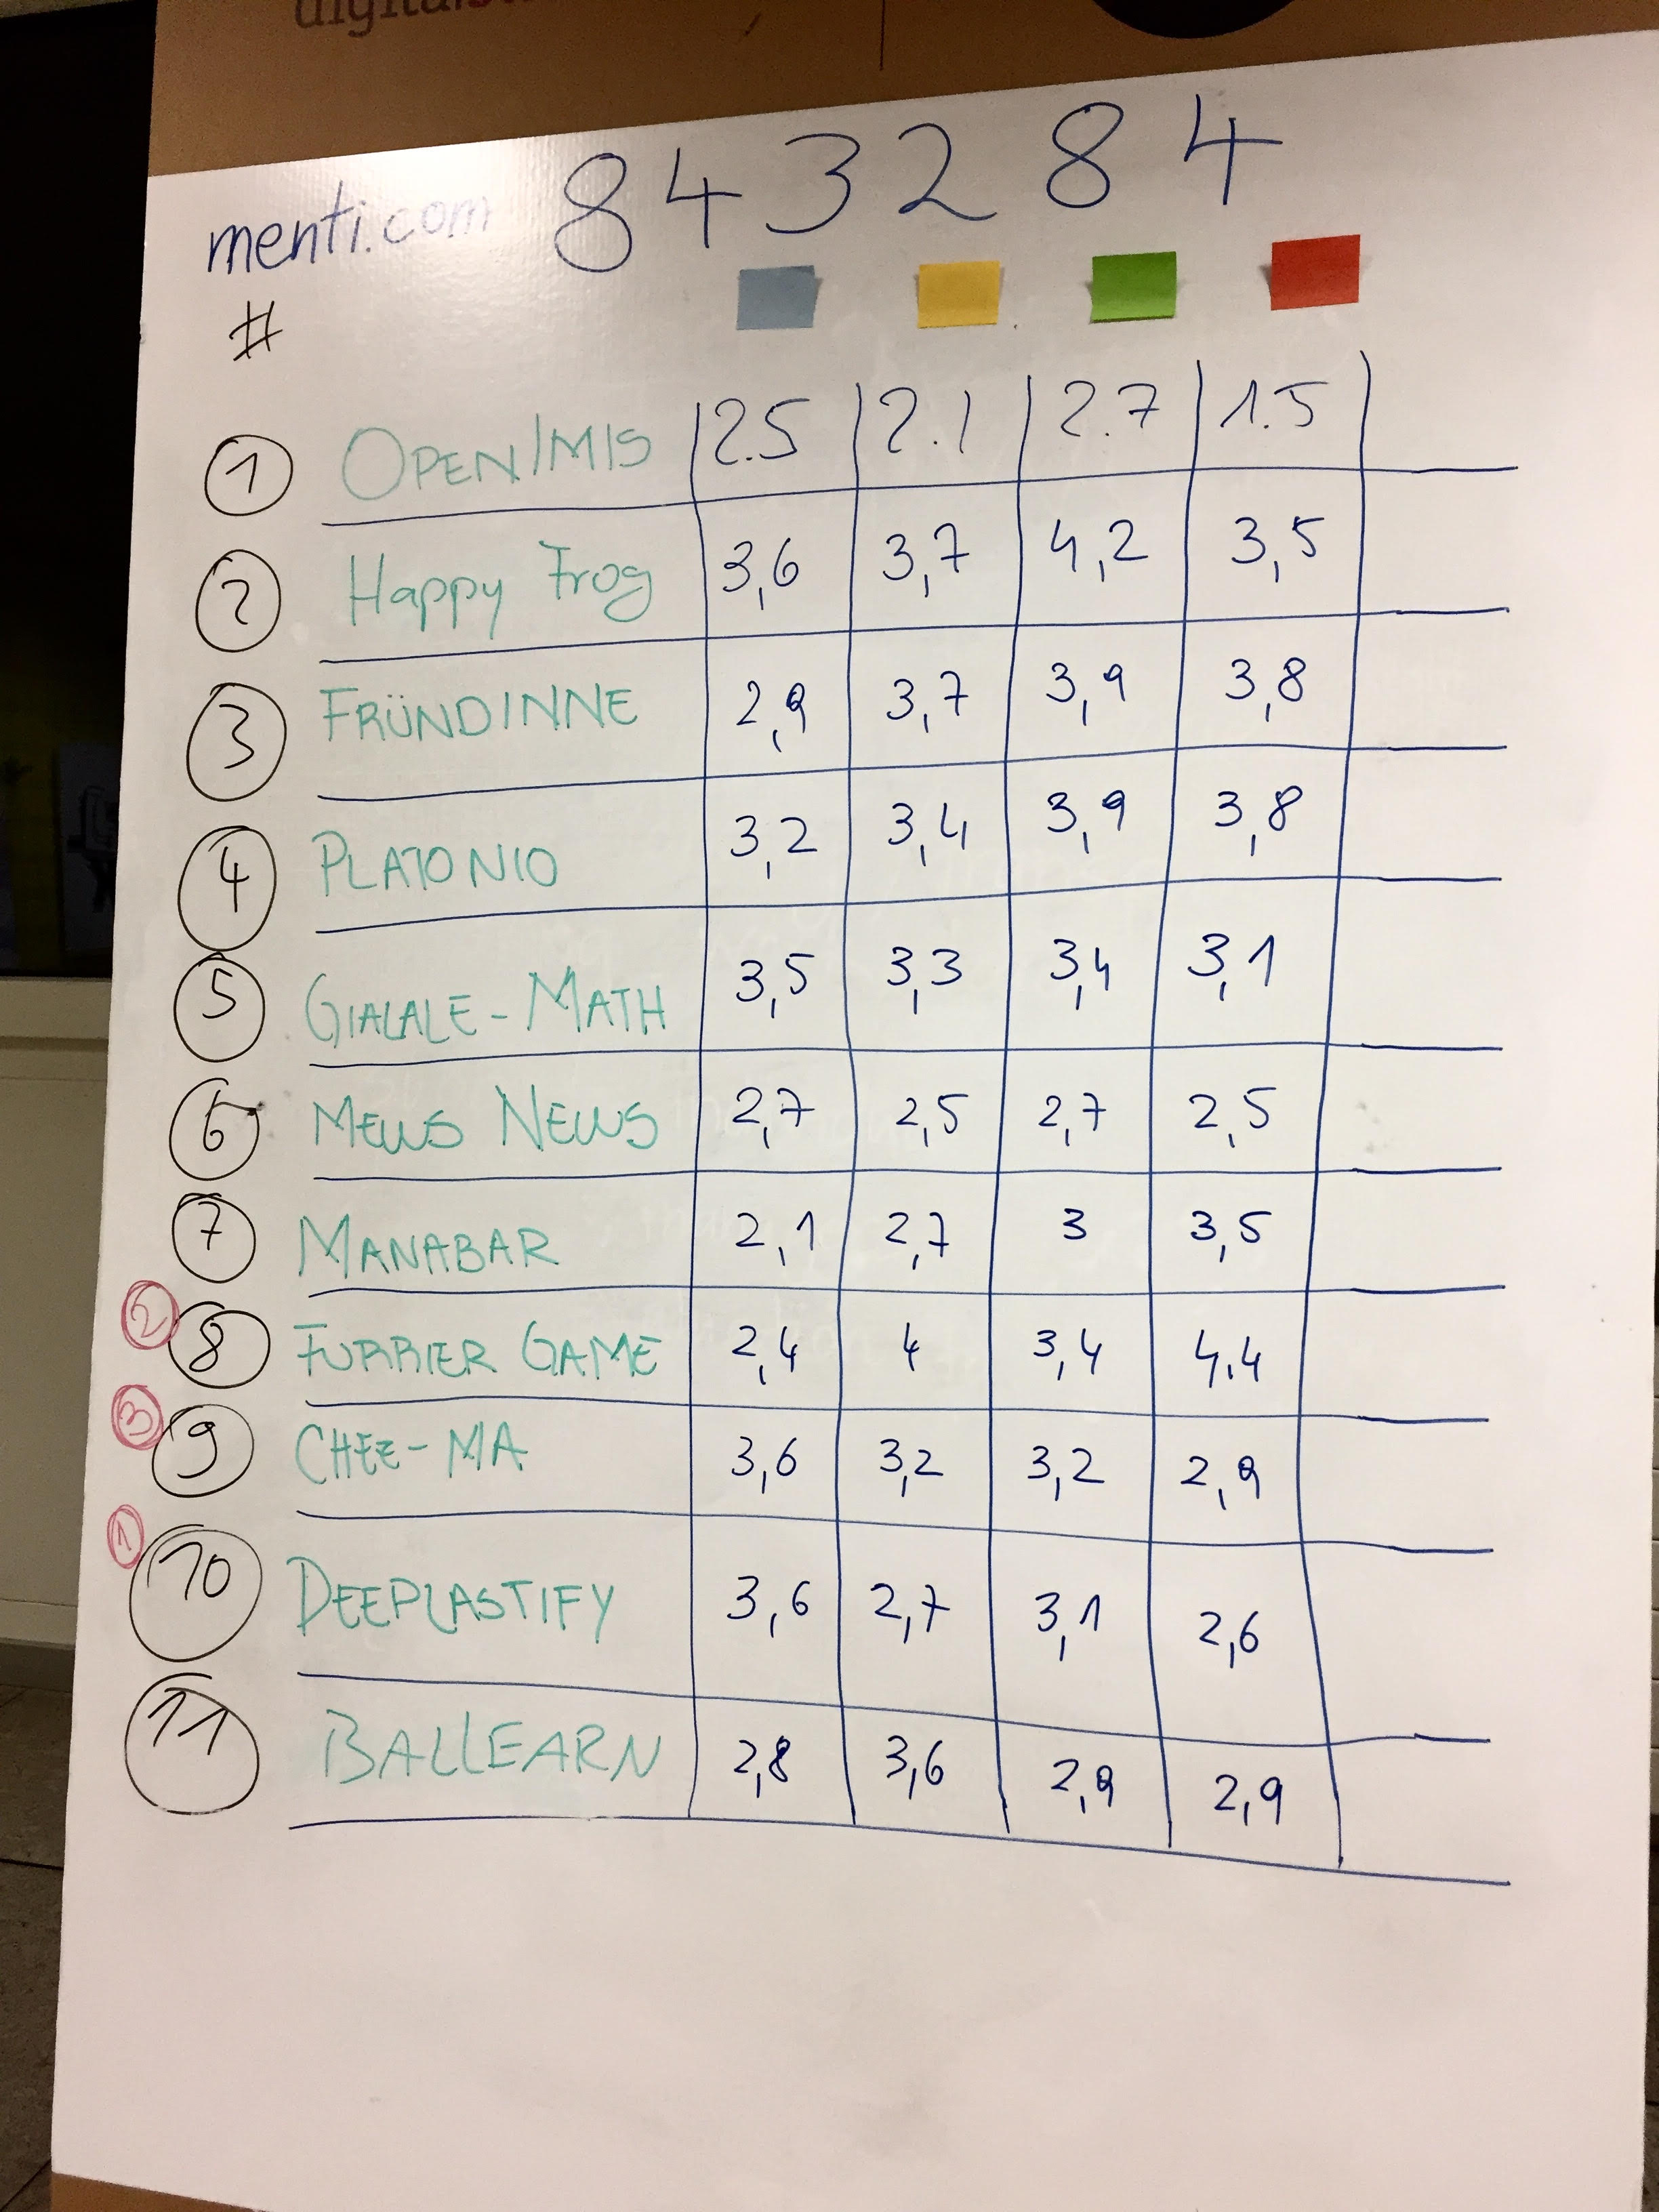 menti.com 843284
#
1 OPENIMIS 2.5 2.1 2.7 1.5
2 Happy Frog 3,6 3,7 4,2 3,5
3 FRÜNDINNE 2,9 3,7 3,9 3,8
4 PLATONIO 3,2 3,4 3,9 3,8
5 GIALALE-MATH 3,5 3,3 3,4 3,1
6 MEWS NEWS 2,7 2,5 2,7 2,5
7 MANABAR 2,1 2,7 3 3,5
2 8 FURRIER GAME 2,4 4 3,4 4.4
3 9 CHEE-MA 3,6 3,2 3,2 2,9
1 10 DEEPLASTIFY 3,6 2,7 3,1 2,6
11 BALLEARN 2,8 3,6 2,9 2,9